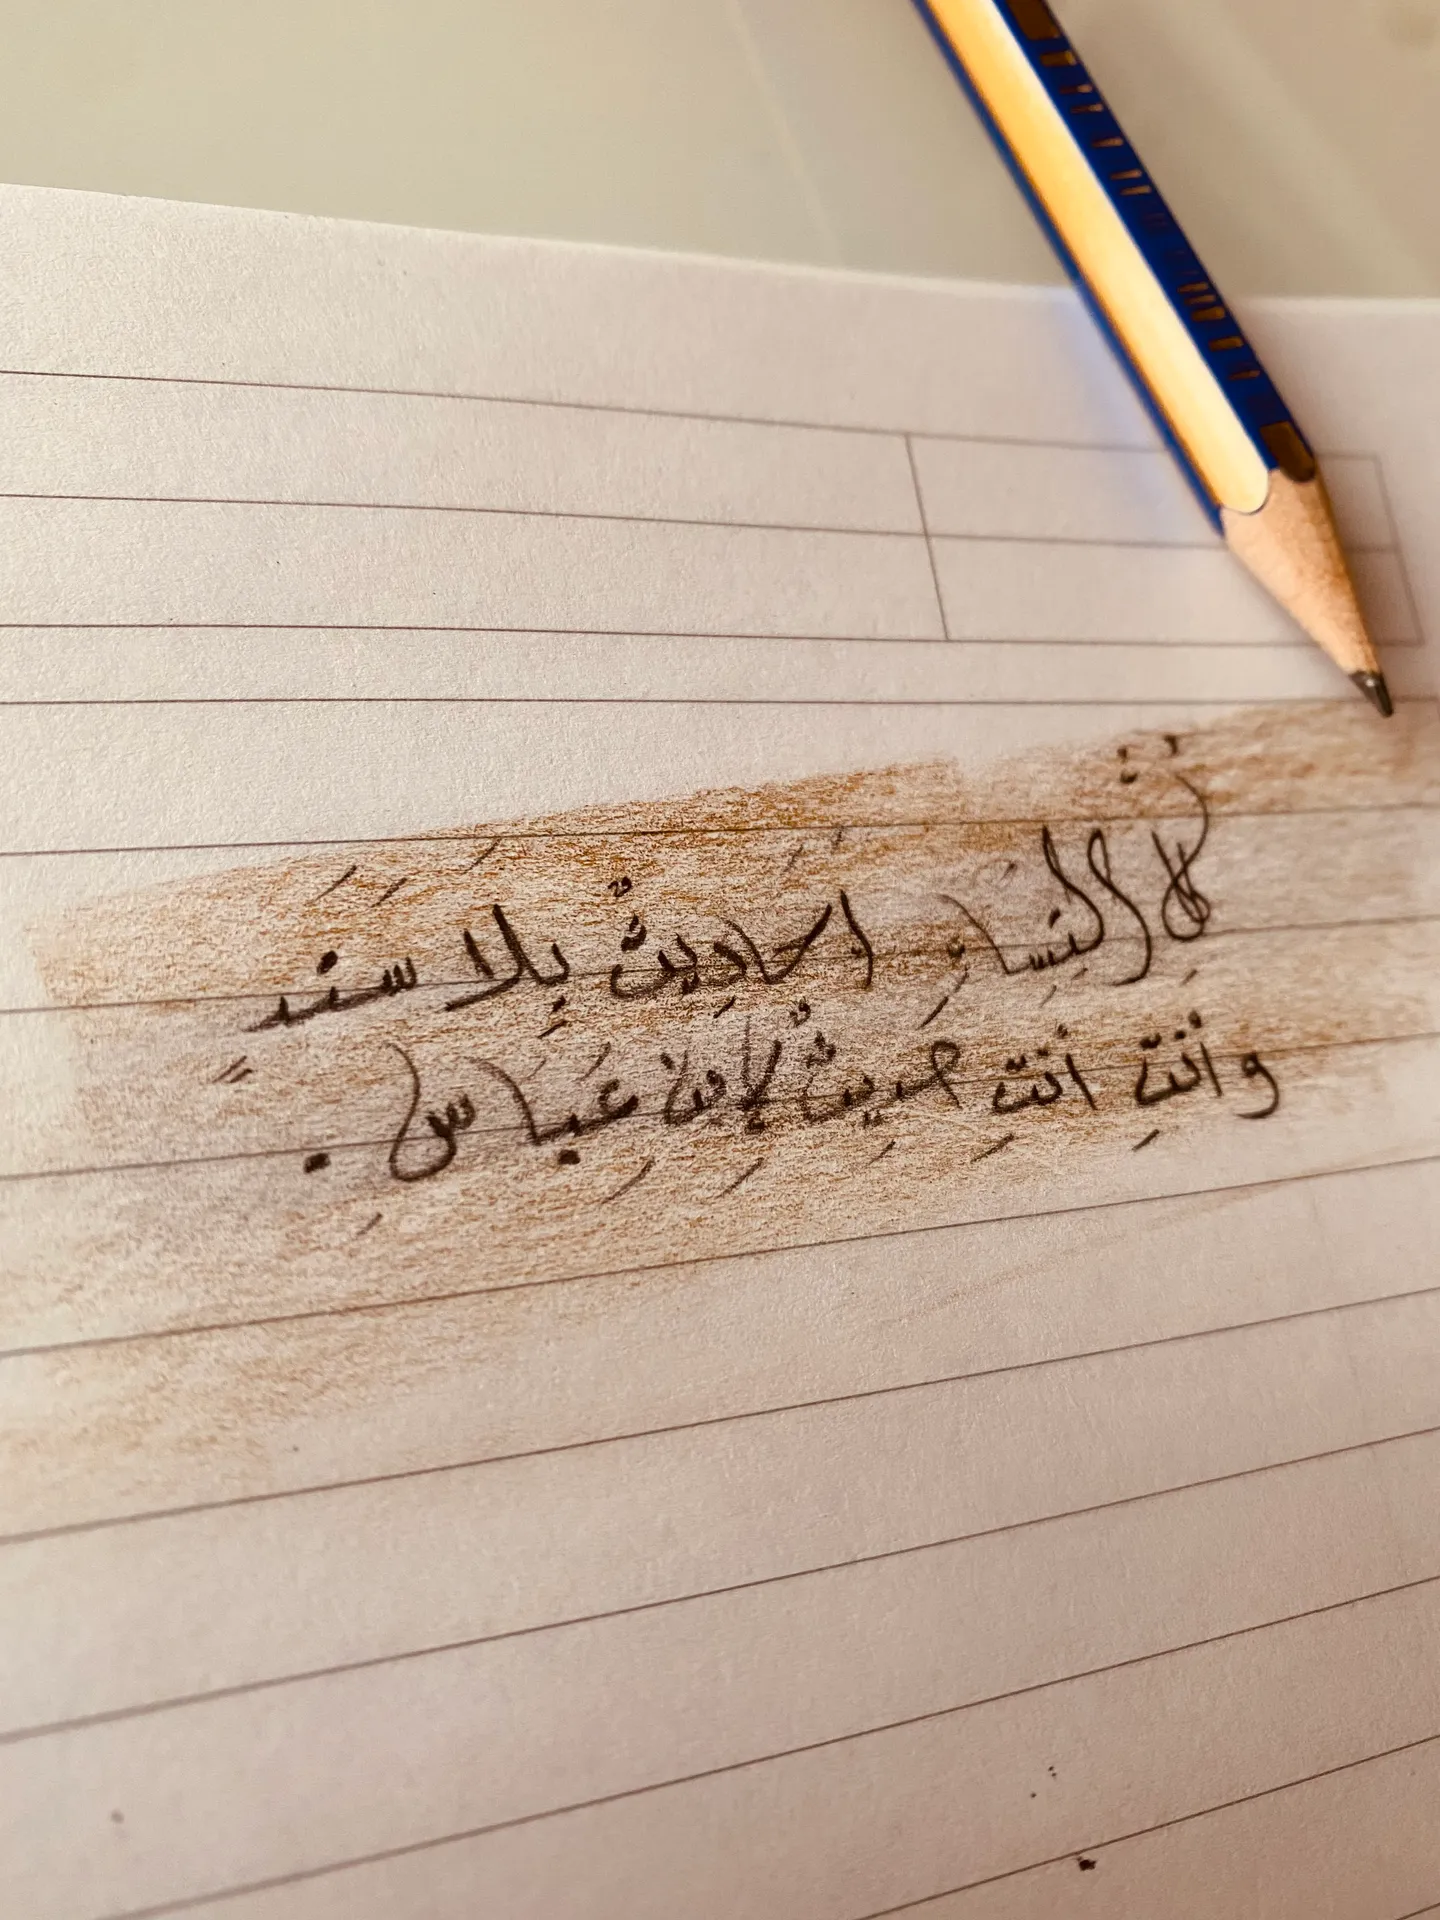 كلُّ النِّسَاءِ احَادِيثٌ بِلَا سَنَدٍ
وأنتِ أنتِ حديثٌ لإبنِ عَبَّاسِ.